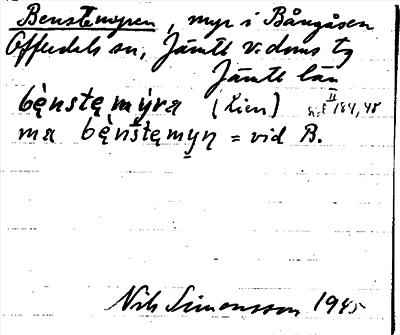 Benstemyren, myr i Bångåsen
Offerdals sn, Jämtl v. doms tg
Jämtl län
bęnstęmýra (Lien)
II 184, 48
ma bęnstęmyn = vid B.
Nils Simonsson 1945